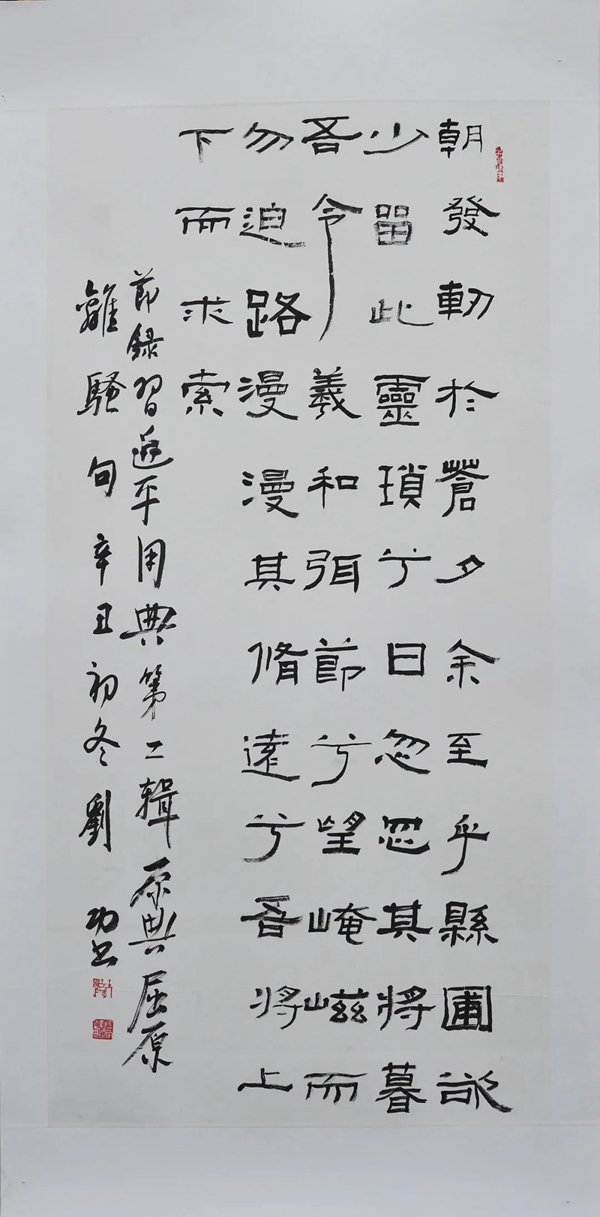 朝發軔於蒼夕余至乎縣圃欲
少留此靈瑣兮日忽忽其將暮
吾令羲和弭節兮望崦嵫而
勿迫路漫漫其脩遠兮吾將上
下而求索
節錄習近平用典第二輯原典屈原
離騷句辛丑初冬劉功書